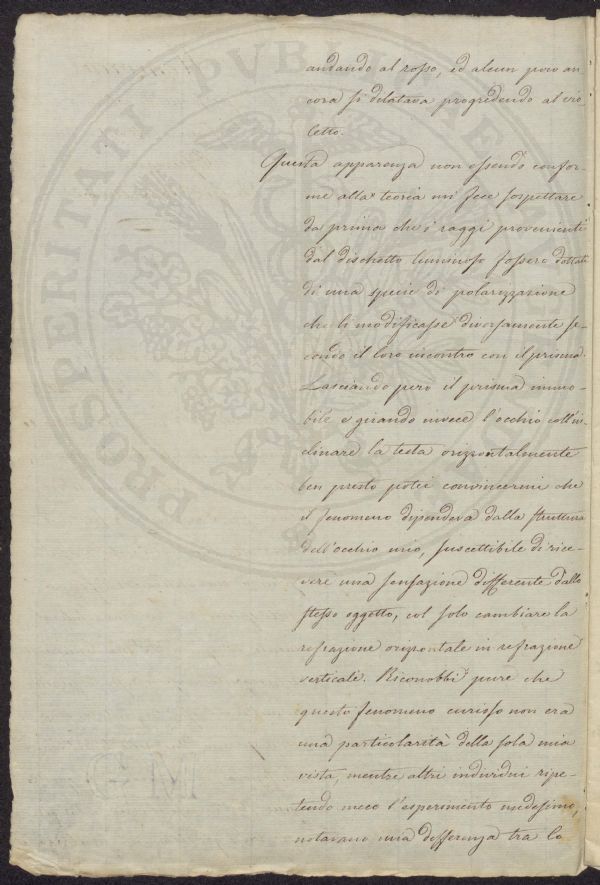 andando al rosso, ed alcun poco an
cora si dilatava progredendo al vio-
letto.
Questa apparenza non essendo confor-
me alla teoria mi fece sospettare
da prima che i raggi provenienti
dal dischetto luminoso fossero dottati
di una specie di polarizzazione
che li modificasse diversamente se-
condo il loro incontro con il prisma.
Lasciando però il prisma immo-
bile e girando invece l'occhio coll'in-
clinare la testa orizzontalmente
ben presto potei convincermi che
il fenomeno dipendeva dalla struttura
dell'occhio mio, suscettibile di rice-
vere una sensazione differente dallo
stesso oggetto, col solo cambiare la
refrazione orizzontale in refrazione
verticale. Riconobbi pure che
questo fenomeno curioso non era
una particolarità della sola mia
vista, mentre altri individui ripe-
tendo meco l'esperimento medesimo,
notavano una differenza tra lo
PROSPERITATI PVBLICAE